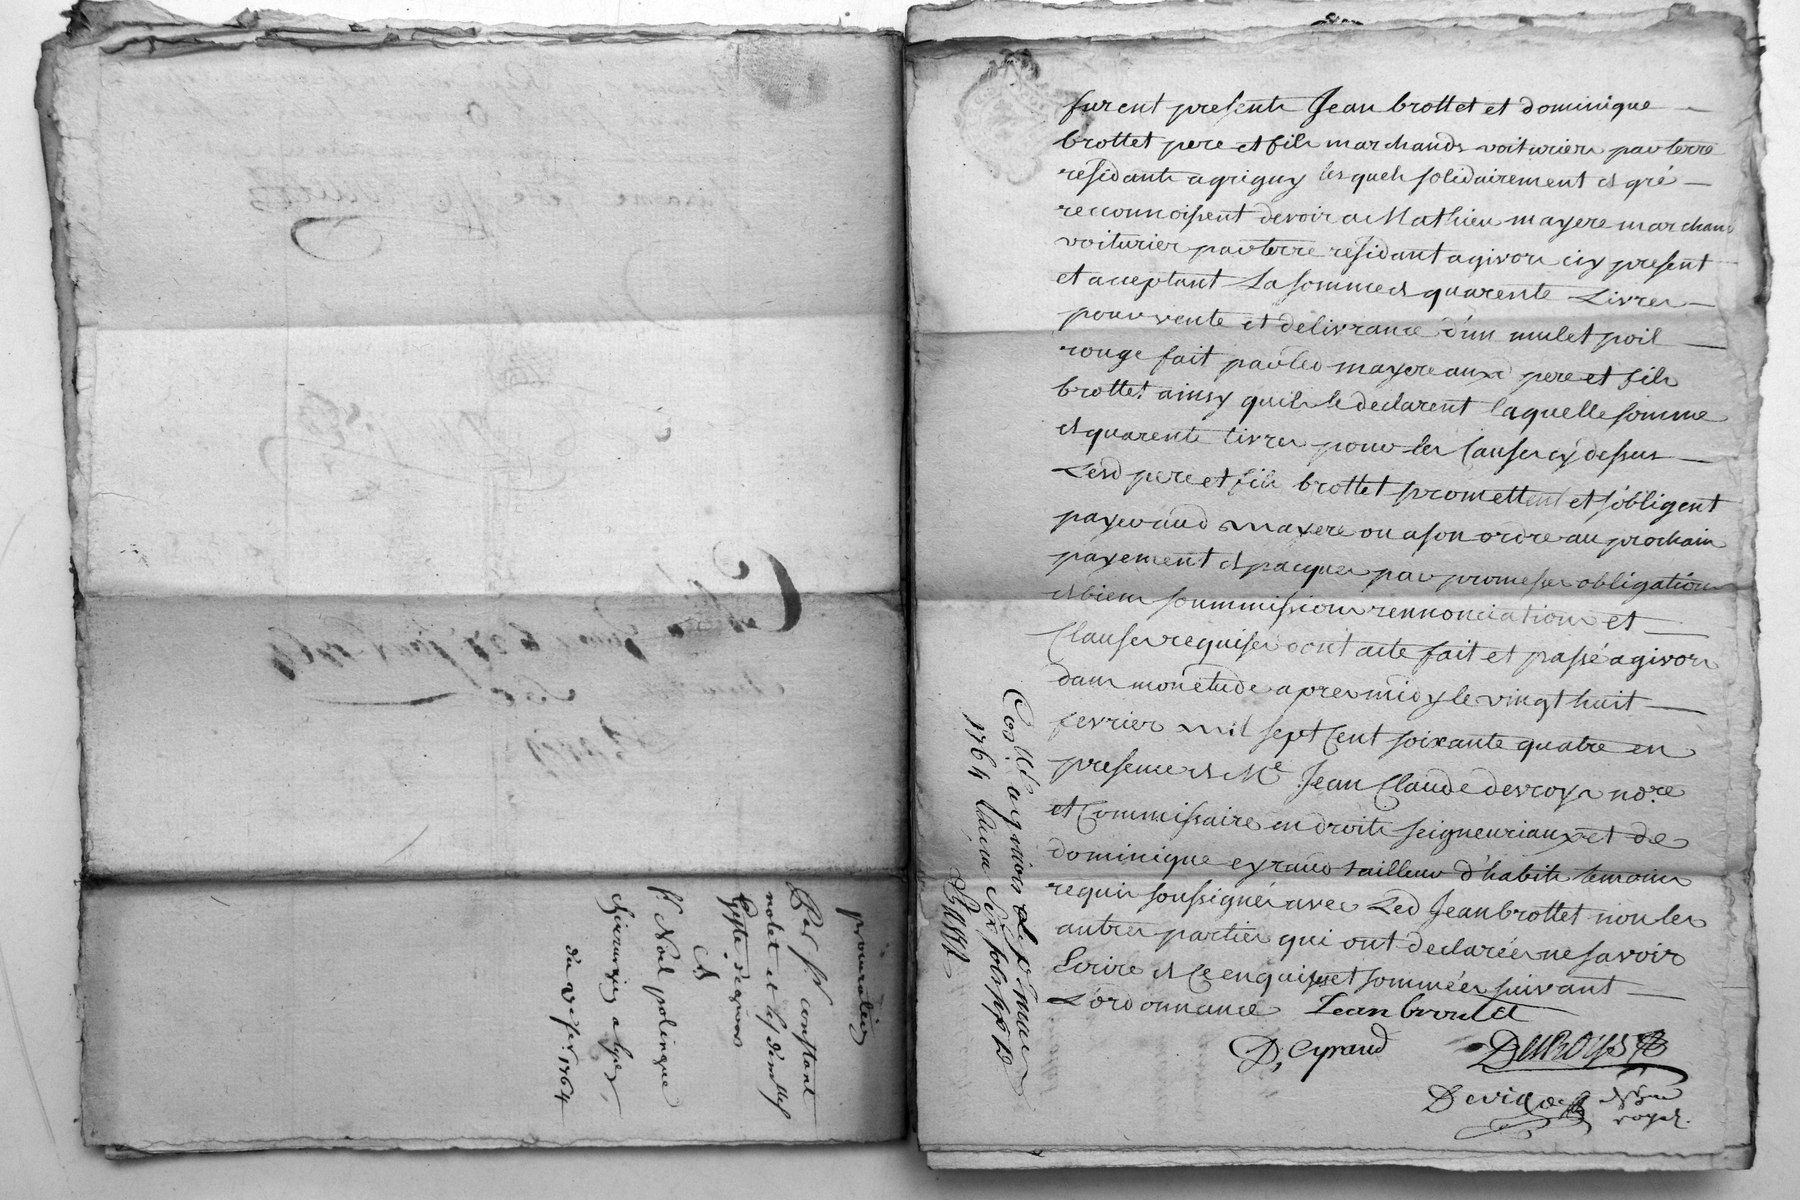 procuration
Par sr constant
nolet et les demlles
de givors
A
sr Noel polingue
chirurgien a
du 27 fer 1764
furent presents Jean brottet et dominique
brottet pere et fils marchands voituriers par terre
residants a grigny lesquels solidairement de gré
reconnoissent devoir a Mathieu mayere marchand
voiturier par terre residant a givors icy present
et aceptant La somme de quarente Livres
pour vente et delivrance d'un mulet poil
rouge fait par led mayere auxd pere et fils
brottet ainsy quils le declarent laquelle somme
de quarente livres pour les Causes cy dessus
Lesd pere et fils brottet promettent et s'obligent
payer aud mayere ou a son ordre au prochain
payement de pacques par promesses obligation
de biens soummissions rennonciations et
Clauses requises dont acte fait et passé a givors
dans mon etude apres midy le vingt huit
fevrier mil sept Cent soixante quatre en
presence de Me Jean Claude desroys nore
et Commissaire en droits seigneuriaux et de
dominique eyraud tailleur d'habits temoins
requis soussignés avec Led Jean brottet non les
autres parties qui ont declarées ne savoir
Ecrire de Ce enquises et sommées suivant
L'ordonnance Jean brottet
D, Eyraud DesROys
Devilloe nore
royal.
Conlle a givors le p. mars
1764 Recu six sols six d